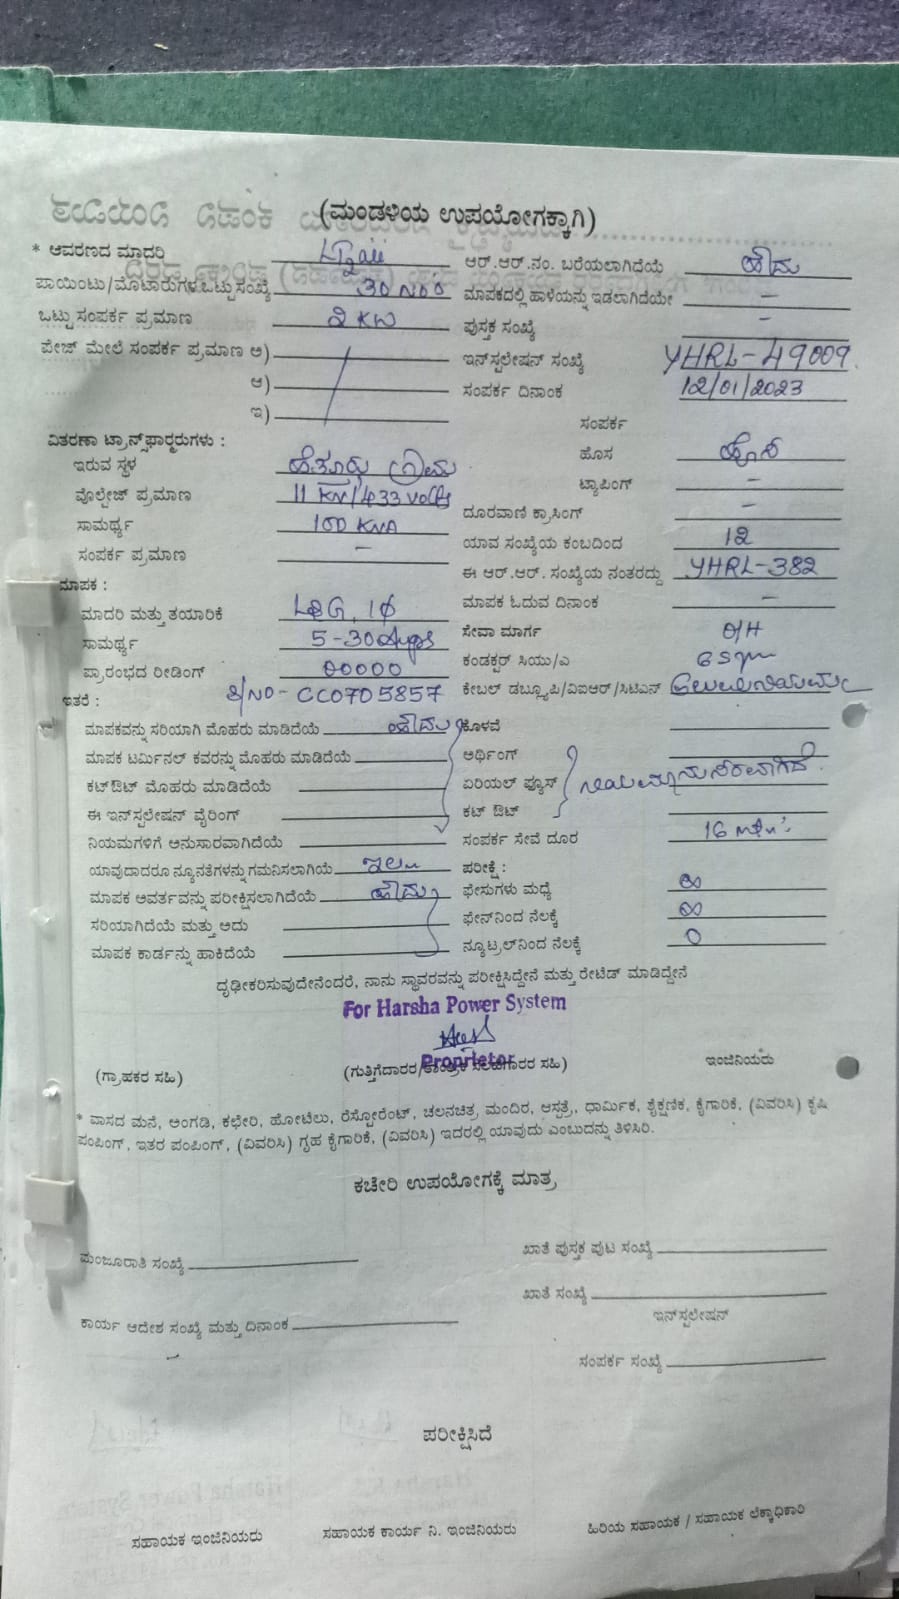 (ಮಂಡಳಿಯ ಉಪಯೋಗಕ್ಕಾಗಿ)
* ಆವರಣದ ಮಾದರಿ
ಆರ್.ಆರ್.ನಂ. ಬರೆಯಲಾಗಿದೆಯೆ ಹೌದು
ಪಾಯಿಂಟು/ಮೊಟಾರುಗಳ ಒಟ್ಟು ಸಂಖ್ಯೆ 30 NOS
ಮಾಪಕದಲ್ಲಿ ಹಾಳೆಯನ್ನು ಇಡಲಾಗಿದೆಯೇ -
ಒಟ್ಟು ಸಂಪರ್ಕ ಪ್ರಮಾಣ 2 KW
ಪುಸ್ತಕ ಸಂಖ್ಯೆ -
ಪೇಜ್ ಮೇಲೆ ಸಂಪರ್ಕ ಪ್ರಮಾಣ ಅ)
ಇನ್‌ಸ್ಟಲೇಷನ್ ಸಂಖ್ಯೆ YHRL-49009
ಆ)
ಸಂಪರ್ಕ ದಿನಾಂಕ 12/01/2023
ಇ)
ಸಂಪರ್ಕ
ವಿತರಣಾ ಟ್ರಾನ್ಸ್‌ಫಾರ್‍ಮರುಗಳು :
ಇರುವ ಸ್ಥಳ ಗ್ರಾಮ
ಹೊಸ ಹೊಸ
ವೊಲ್ಟೇಜ್ ಪ್ರಮಾಣ 11 KV/433 volts
ಟ್ಯಾಪಿಂಗ್ -
ಸಾಮರ್ಥ್ಯ 100 KVA
ದೂರವಾಣಿ ಕ್ರಾಸಿಂಗ್ -
ಸಂಪರ್ಕ ಪ್ರಮಾಣ -
ಯಾವ ಸಂಖ್ಯೆಯ ಕಂಬದಿಂದ 12
ಮಾಪಕ :
ಈ ಆರ್.ಆರ್. ಸಂಖ್ಯೆಯ ನಂತರದ್ದು YHRL-382
ಮಾದರಿ ಮತ್ತು ತಯಾರಿಕೆ L&G, 1Φ
ಮಾಪಕ ಓದುವ ದಿನಾಂಕ -
ಸಾಮರ್ಥ್ಯ 5-30 Amps
ಸೇವಾ ಮಾರ್ಗ O/H
ಪ್ರಾರಂಭದ ರೀಡಿಂಗ್ 00000
ಕಂಡಕ್ಟರ್ ಸಿಯು/ಎ
ಇತರೆ : S/NO- CC0705857
ಕೇಬಲ್ ಡಬ್ಲ್ಯೂಪಿ/ವಿಐಆರ್/ಸಿಟಿಎನ್
ಮಾಪಕವನ್ನು ಸರಿಯಾಗಿ ಮೊಹರು ಮಾಡಿದೆಯೆ ಹೌದು
ಕೊಳವೆ
ಮಾಪಕ ಟರ್ಮಿನಲ್ ಕವರನ್ನು ಮೊಹರು ಮಾಡಿದೆಯೆ
ಅರ್ಥಿಂಗ್
ಕಟ್‌ಔಟ್ ಮೊಹರು ಮಾಡಿದೆಯೆ
ಏರಿಯಲ್ ಫ್ಯೂಸ್ ನಿಯಮಾನುಸಾರವಾಗಿದೆ.
ಈ ಇನ್‌ಸ್ಟಲೇಷನ್ ವೈರಿಂಗ್
ಕಟ್ ಔಟ್
ನಿಯಮಗಳಿಗೆ ಅನುಸಾರವಾಗಿದೆಯೆ
ಸಂಪರ್ಕ ಸೇವೆ ದೂರ 16
ಯಾವುದಾದರೂ ನ್ಯೂನತೆಗಳನ್ನು ಗಮನಿಸಲಾಗಿಯೆ ಇಲ್ಲ
ಪರೀಕ್ಷೆ :
ಮಾಪಕ ಅವರ್ತವನ್ನು ಪರೀಕ್ಷಿಸಲಾಗಿದೆಯೆ ಹೌದು
ಫೇಸುಗಳು ಮಧ್ಯೆ ∞
ಸರಿಯಾಗಿದೆಯೆ ಮತ್ತು ಅದು
ಫೇಸ್‌ನಿಂದ ನೆಲಕ್ಕೆ ∞
ಮಾಪಕ ಕಾರ್ಡನ್ನು ಹಾಕಿದೆಯೆ
ನ್ಯೂಟ್ರಲ್‌ನಿಂದ ನೆಲಕ್ಕೆ 0
ದೃಢೀಕರಿಸುವುದೇನೆಂದರೆ, ನಾನು ಸ್ಥಾವರವನ್ನು ಪರೀಕ್ಷಿಸಿದ್ದೇನೆ ಮತ್ತು ರೇಟೆಡ್ ಮಾಡಿದ್ದೇನೆ
For Harsha Power System
Proprietor
(ಗ್ರಾಹಕರ ಸಹಿ)
(ಗುತ್ತಿಗೆದಾರರ/ತಾಂತ್ರಿಕ ಸಲಹೆಗಾರರ ಸಹಿ)
ಇಂಜಿನಿಯರು
* ವಾಸದ ಮನೆ, ಅಂಗಡಿ, ಕಛೇರಿ, ಹೋಟೆಲು, ರೆಸ್ಟೋರೆಂಟ್, ಚಲನಚಿತ್ರ, ಮಂದಿರ, ಆಸ್ಪತ್ರೆ, ಧಾರ್ಮಿಕ, ಶೈಕ್ಷಣಿಕ, ಕೈಗಾರಿಕೆ, (ವಿವರಿಸಿ) ಕೃಷಿ
ಪಂಪಿಂಗ್, ಇತರ ಪಂಪಿಂಗ್, (ವಿವರಿಸಿ) ಗೃಹ ಕೈಗಾರಿಕೆ, (ವಿವರಿಸಿ) ಇದರಲ್ಲಿ ಯಾವುದು ಎಂಬುದನ್ನು ತಿಳಿಸಿರಿ.
ಕಚೇರಿ ಉಪಯೋಗಕ್ಕೆ ಮಾತ್ರ
ಮಂಜೂರಾತಿ ಸಂಖ್ಯೆ
ಖಾತೆ ಪುಸ್ತಕ ಪುಟ ಸಂಖ್ಯೆ
ಖಾತೆ ಸಂಖ್ಯೆ
ಕಾರ್ಯ ಆದೇಶ ಸಂಖ್ಯೆ ಮತ್ತು ದಿನಾಂಕ
ಇನ್‌ಸ್ಟಲೇಷನ್
ಸಂಪರ್ಕ ಸಂಖ್ಯೆ
ಪರೀಕ್ಷಿಸಿದೆ
ಸಹಾಯಕ ಇಂಜಿನಿಯರು
ಸಹಾಯಕ ಕಾರ್ಯ ನಿ. ಇಂಜಿನಿಯರು
ಹಿರಿಯ ಸಹಾಯಕ / ಸಹಾಯಕ ಲೆಕ್ಕಾಧಿಕಾರಿ